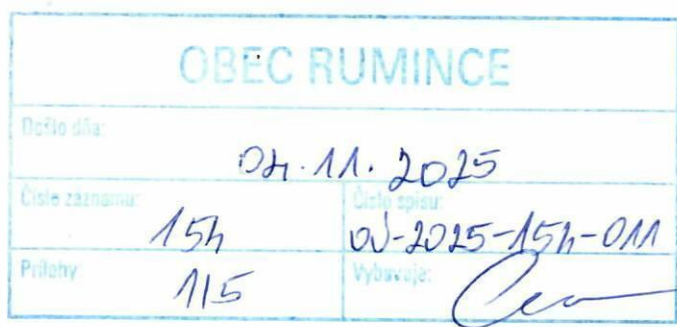 OBEC RUMINCE
Došlo dňa:
04.11.2025
Číslo záznamu:
154
Číslo spisu:
OÚ-2025-154-011
Prílohy
1/5
Vybavuje: